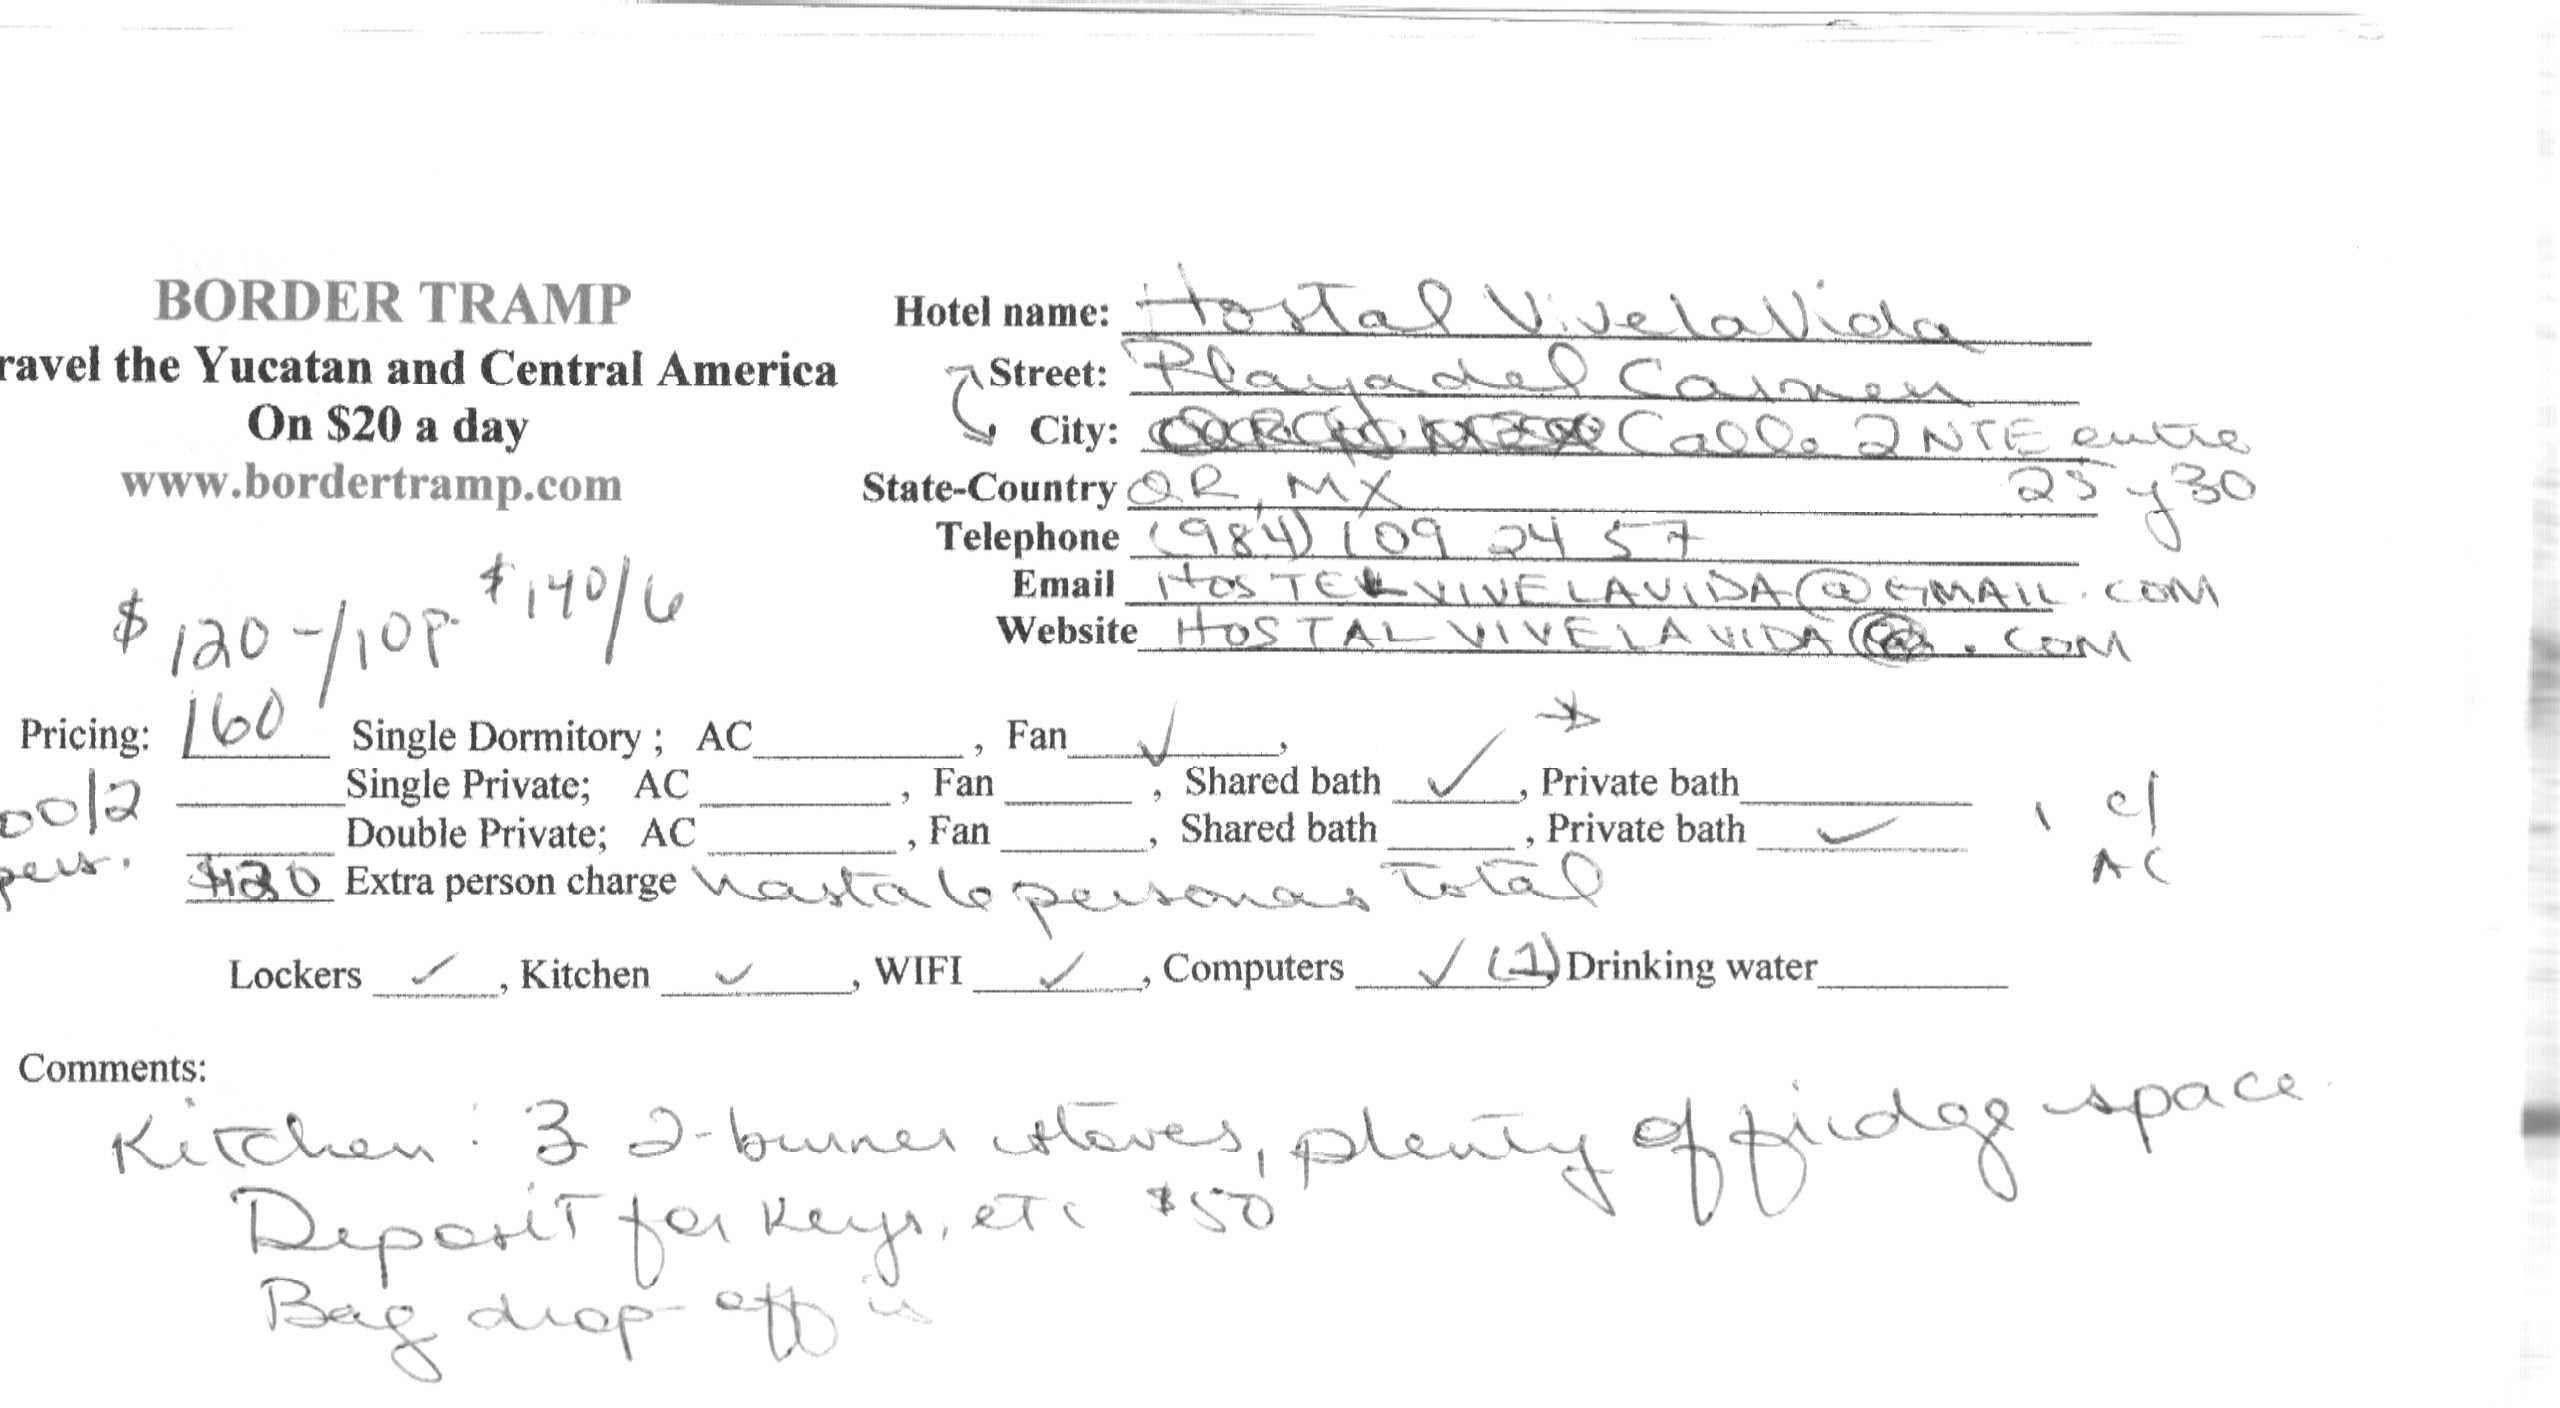 BORDER TRAMP
ravel the Yucatan and Central America
On $20 a day
www.bordertramp.com
Hotel name: Hostal Vive la Vida
Street: Playa del Carmen
City: Calle 2 NTE entre
25 y 30
State-Country QR, MX
Telephone (984) 109 24 57
Email HOSTELVIVELAVIDA@GMAIL.COM
Website HOSTALVIVELAVIDA.COM
$120-/10p. $140/6
Pricing: 160 Single Dormitory; AC, Fan ✓,
Single Private; AC, Fan, Shared bath ✓, Private bath
00/2 pers.
Double Private; AC, Fan, Shared bath, Private bath ✓
, c/ AC
Extra person charge hasta 6 personas total
Lockers ✓, Kitchen ✓, WIFI ✓, Computers ✓ (1), Drinking water
Comments:
Kitchen: 3 2-burner stoves, plenty of fridge space
Deposit for keys, etc $50
Bag drop-off is